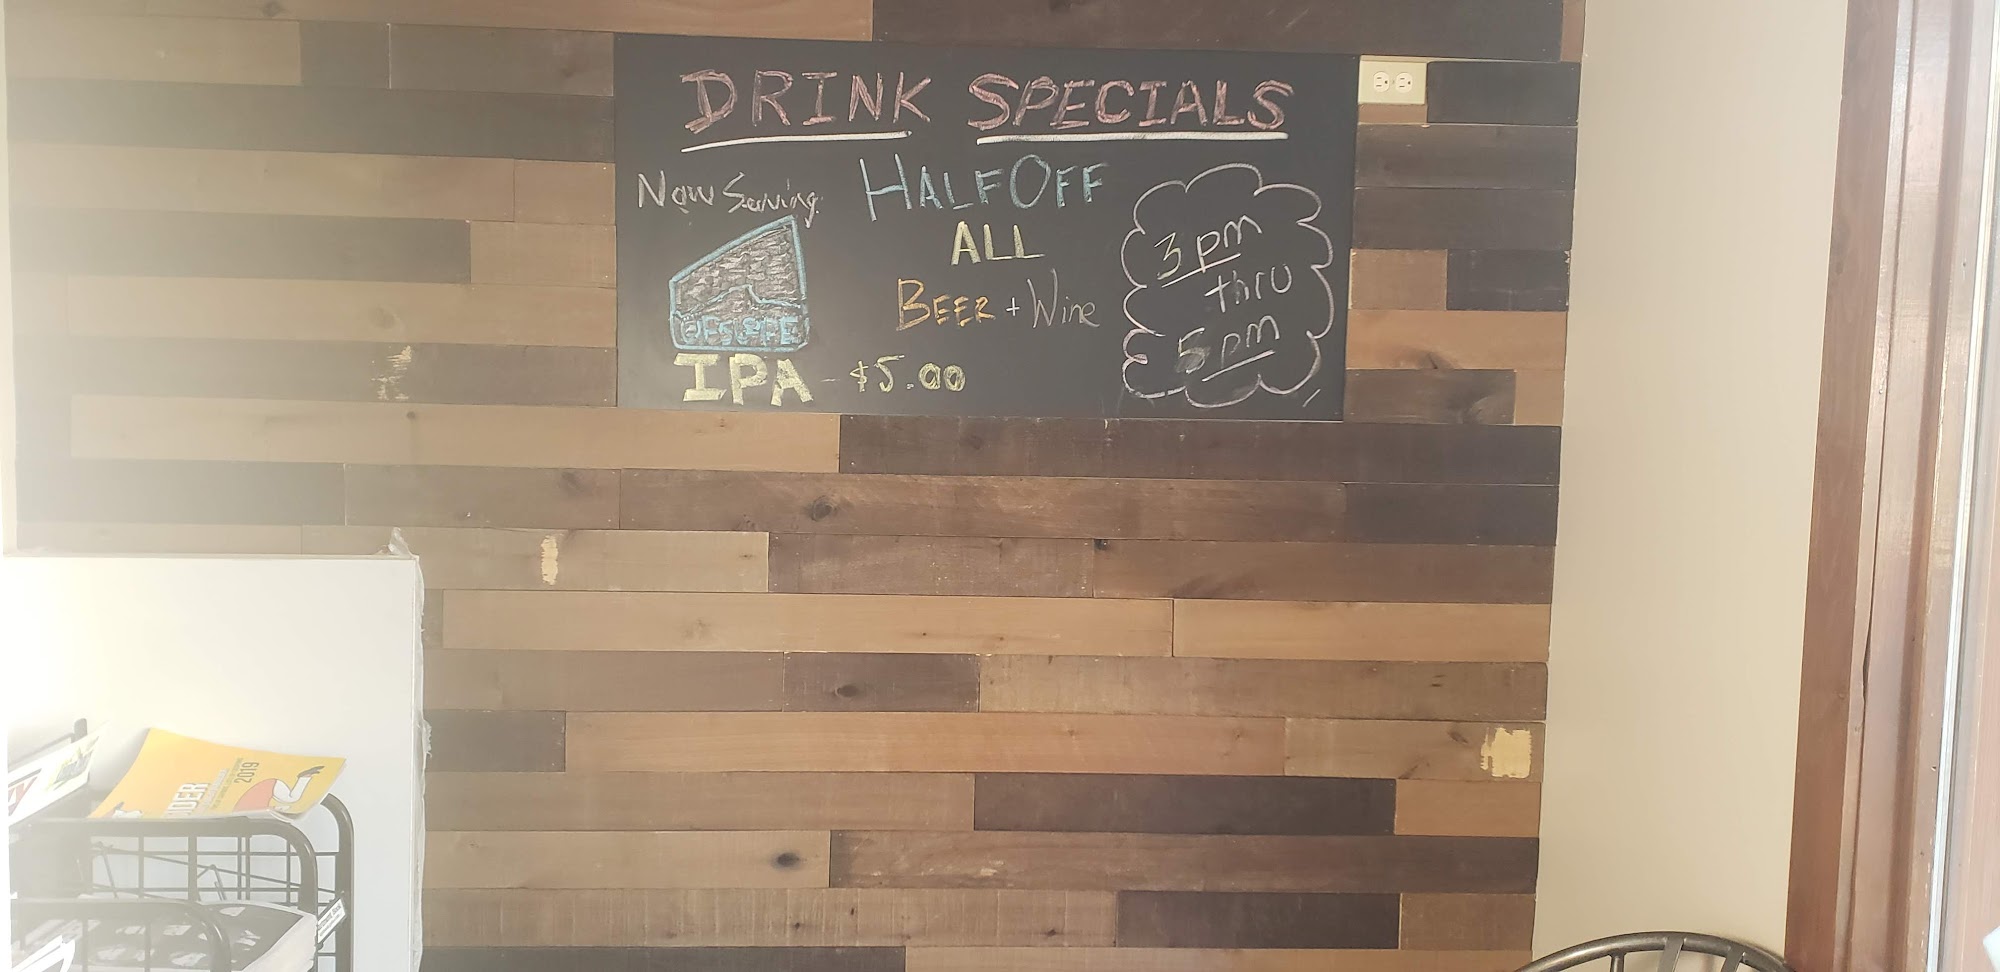 DRINK SPECIALS
Now Serving:
IPA - $5.00
HALF OFF
ALL
BEER + Wine
3pm
thru
5pm
2019